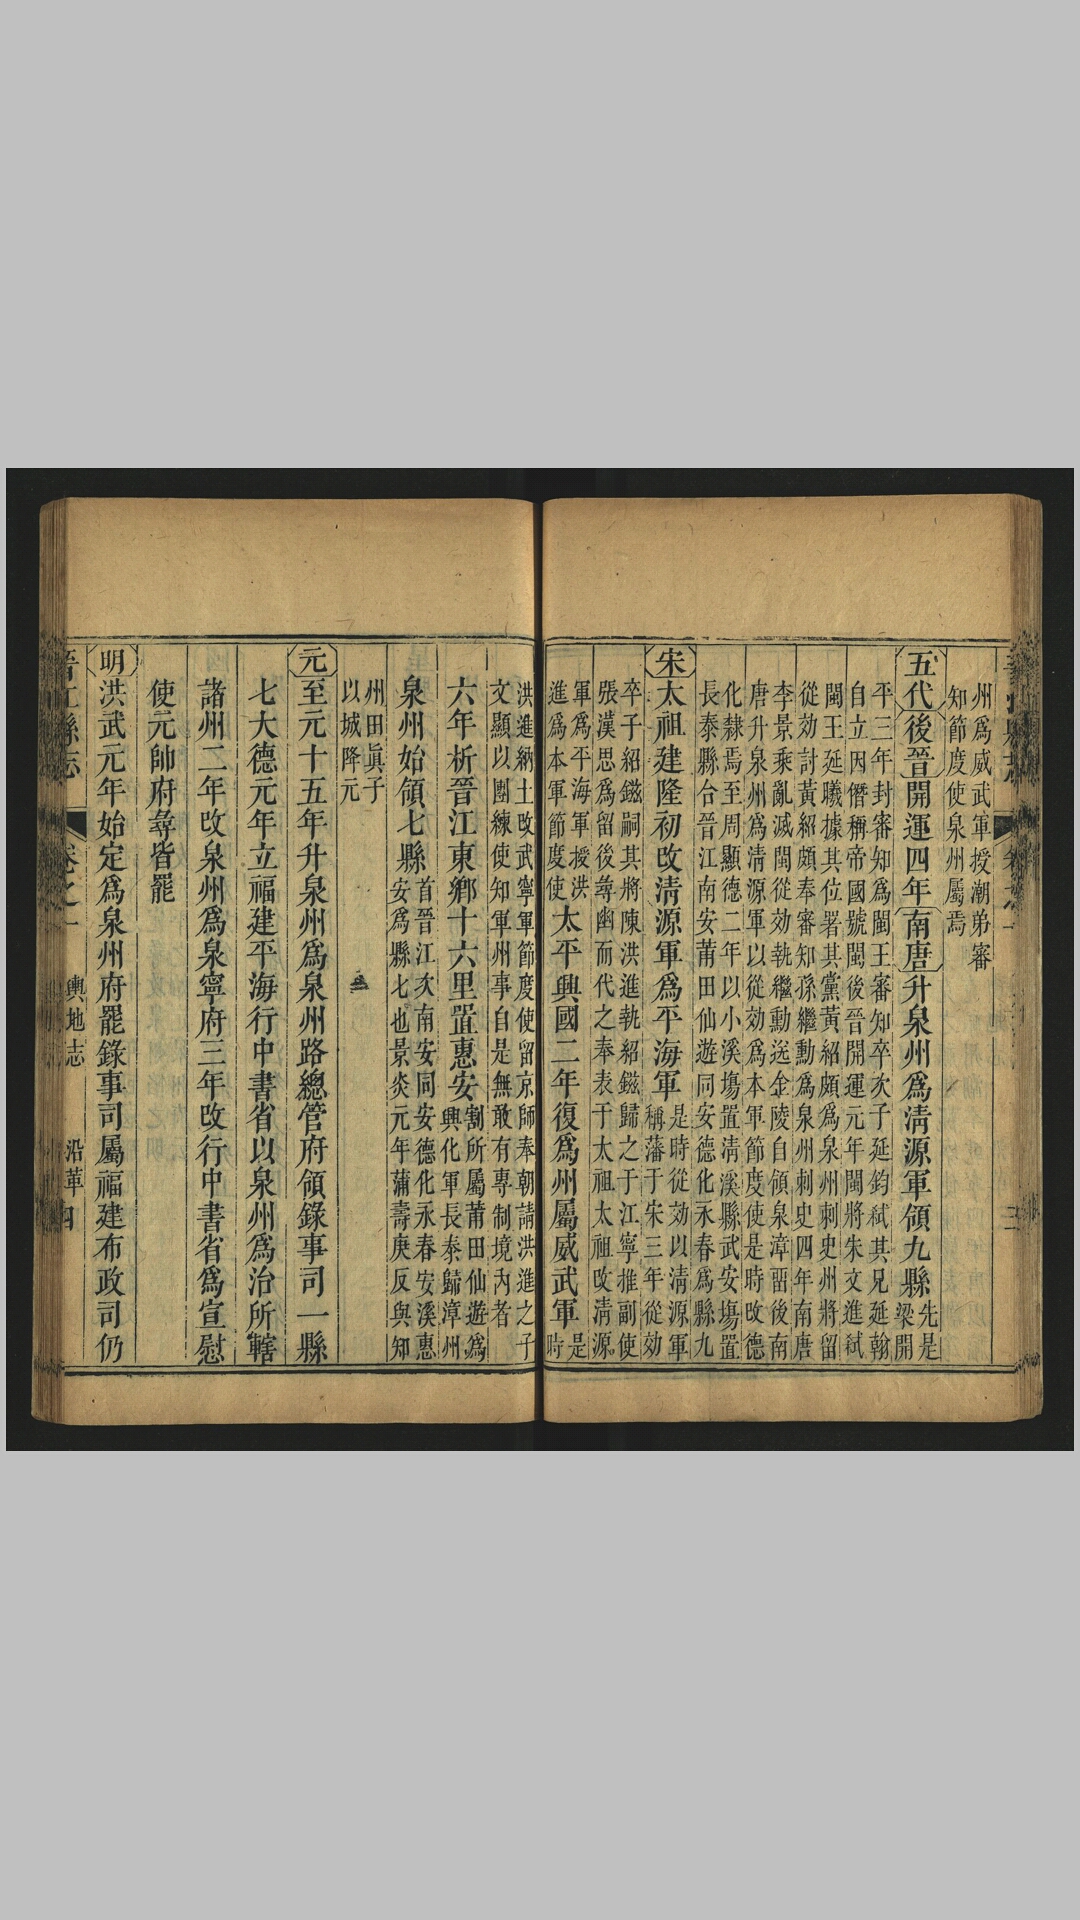 州爲威武軍授潮弟審
知節度使泉州屬焉
五代後晉開運四年南唐升泉州爲清源軍領九縣先是
梁開
平三年封審知爲閩王審知卒次子延鈞弒其兄延翰
自立因僭稱帝國號閩後晉開運元年閩將朱文進弒
閩王延曦據其位署其黨黃紹頗爲泉州刺史州將留
從効討黃紹頗奉審知孫繼勳爲泉州刺史四年南唐
李景乘亂滅閩從効執繼勳送金陵自領泉漳畱後南
唐升泉州爲清源軍以從効爲本軍節度使是時改德
化隸焉至周顯德二年以小溪塲置清溪縣武安塲置
長泰縣合晉江南安莆田仙遊同安德化永春爲縣九
宋太祖建隆初改清源軍爲平海軍是時從効以清源軍
稱藩于宋三年從効
卒子紹鎡嗣其將陳洪進執紹鎡歸之于江寧推副使
張漢思爲留後尋幽而代之奉表于太祖太祖改清源
軍爲平海軍授洪
進爲本軍節度使太平興國二年復爲州屬威武軍是
時
洪進納土改武寧軍節度使留京師奉朝請洪進之子
文顯以團練使知軍州事自是無敢有專制境內者
六年析晉江東鄕十六里置惠安割所屬莆田仙遊爲
興化軍長泰歸漳州
泉州始領七縣首晉江次南安同安德化永春安溪惠
安爲縣七也景炎元年蒲壽庚反與知
州田眞子
以城降元
元至元十五年升泉州爲泉州路總管府領錄事司一縣
七大德元年立福建平海行中書省以泉州爲治所轄
諸州二年改泉州爲泉寧府三年改行中書省爲宣慰
使元帥府尋皆罷
明洪武元年始定爲泉州府罷錄事司屬福建布政司仍
晉江縣志 卷之一 輿地志 沿革 四